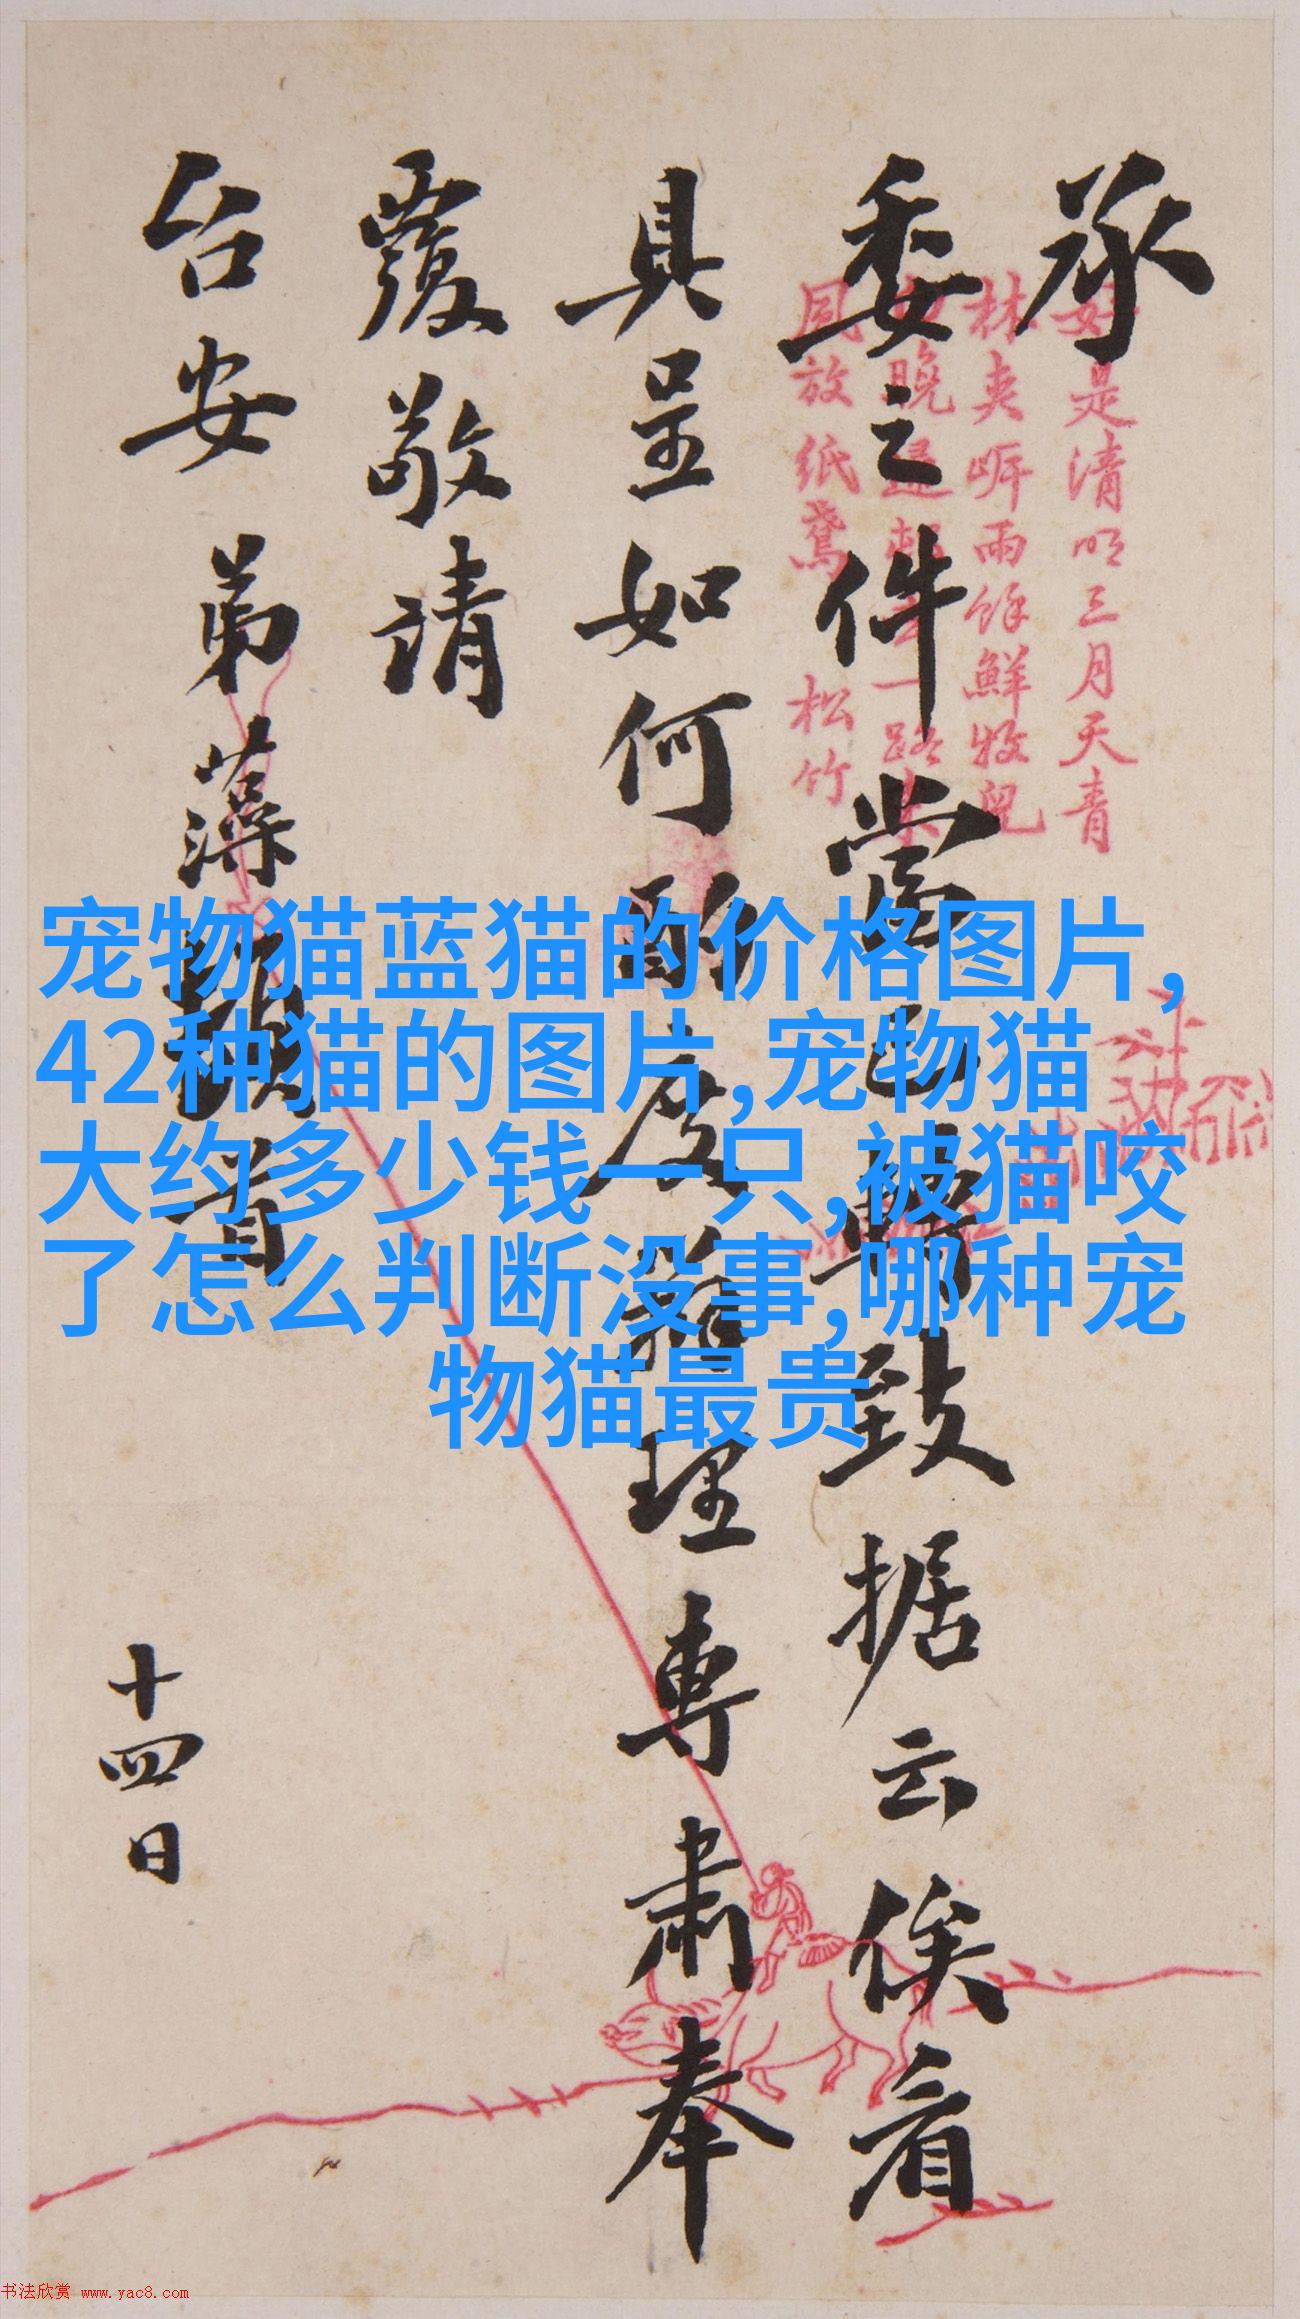 承
委之件當已轉致据云俟看
具呈如何酌度辦理專肅奉
覆敬請
台安 弟藻頓首
十四日
好是清明三月天青
林夾岸雨餘鮮牧兒
晚歸一路
風放紙鳶 松竹
宠物猫蓝猫的价格图片,
42种猫的图片,宠物猫
大约多少钱一只,被猫咬
了怎么判断没事,哪种宠
物猫最贵
书法欣赏 www.yac8.com